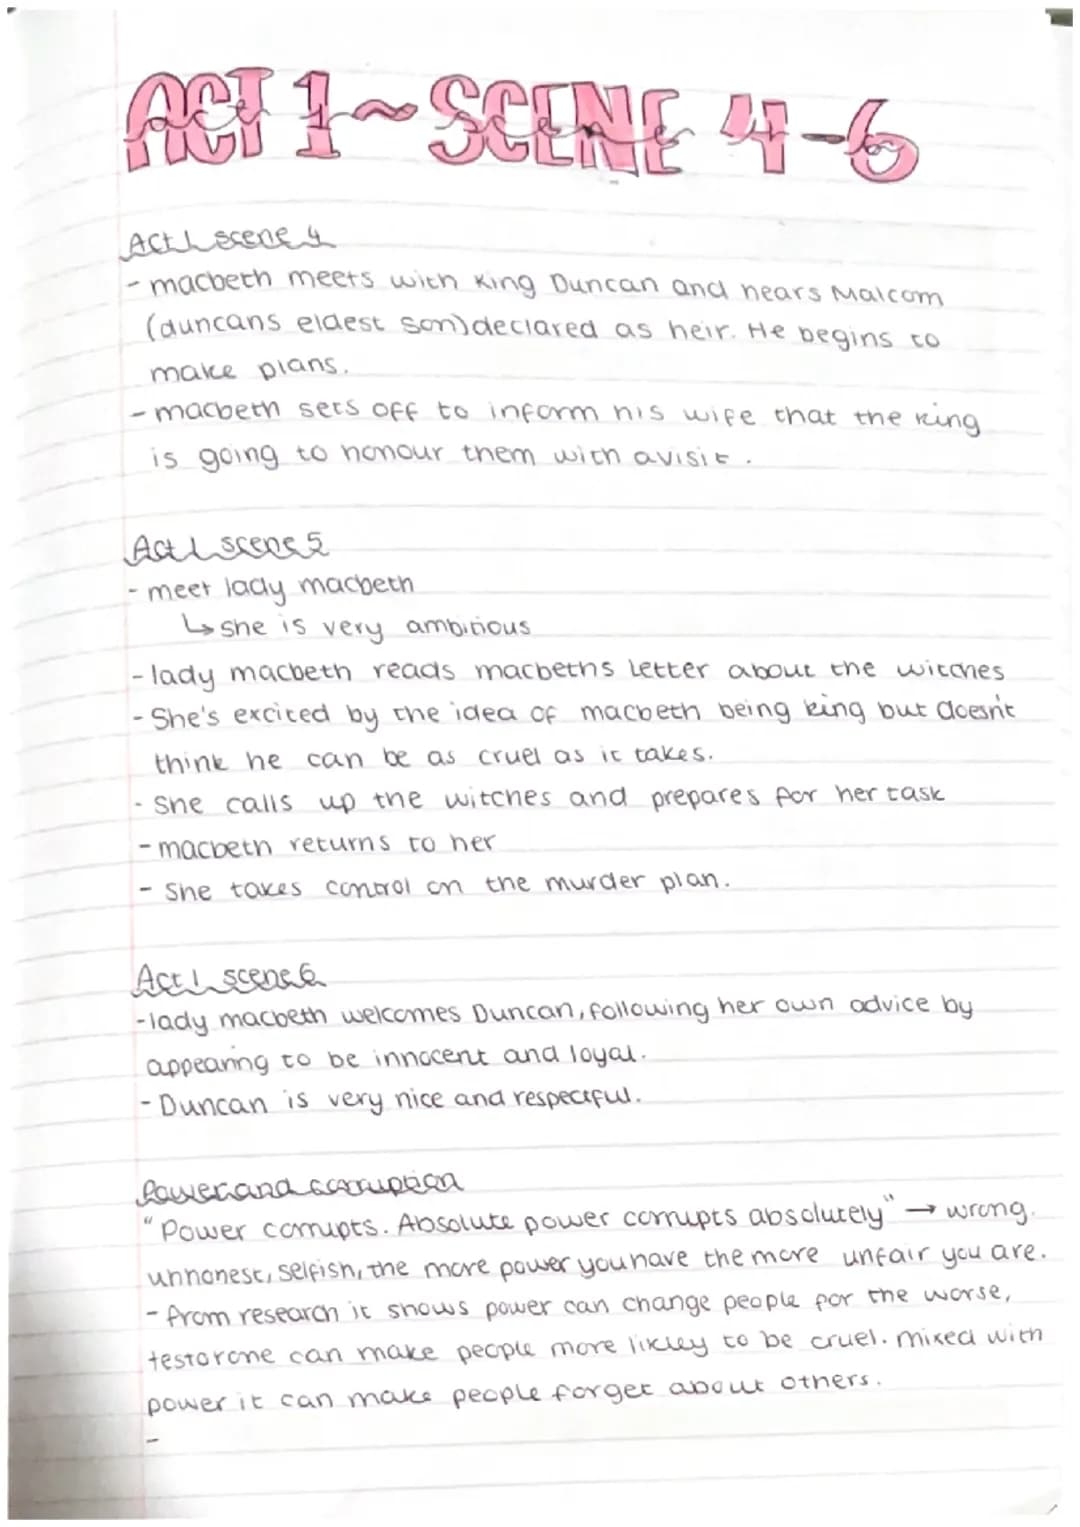 ACT 1 ~ SCENE 4-6
Act 1 scene 4
- macbeth meets with King Duncan and hears Malcom
(duncans eldest son) declared as heir. He begins to
make plans.
- macbeth sets off to inform his wife that the king
is going to honour them with a visit.
Act 1 scene 5
- meet lady macbeth
↳ she is very ambitious
- lady macbeth reads macbeths letter about the witches
- She's excited by the idea of macbeth being king but doesn't
think he can be as cruel as it takes.
- She calls up the witches and prepares for her task
- macbeth returns to her
- She takes control on the murder plan.
Act 1 scene 6
- lady macbeth welcomes Duncan, following her own advice by
appearing to be innocent and loyal.
- Duncan is very nice and respectful.
Power and corruption
"Power corrupts. Absolute power corrupts absolutely" → wrong.
unhonest, selfish, the more power you have the more unfair you are.
- from research it shows power can change people for the worse,
testorone can make people more likley to be cruel. mixed with
power it can make people forget about others.
-